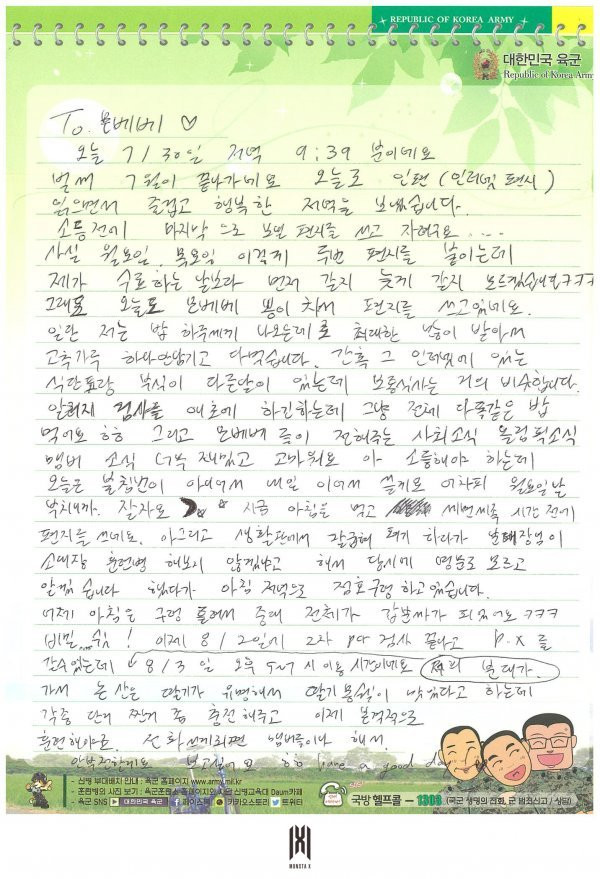 REPUBLIC OF KOREA ARMY
대한민국 육군
Republic of Korea Army
To. 몬베베 ♡
오늘 7/30일 저녁 9:39 분이네요
벌써 7월이 끝나가네요 오늘도 인편 (인터넷 편지)
읽으면서 즐겁고 행복한 저녁을 보냈습니다.
소등전에 마지막으로 보낼 편지를 쓰고 자려구요....
사실 월요일, 목요일 이렇게 두번 편지를 붙이는데
제가 수료하는 날보다 먼저 갈지 늦게 갈지 모르겠습니다ㅋㅋㅋ
그래도 오늘도 몬베베 뽕이 차서 편지를 쓰고있네요.
일단 저는 밥 하루세끼 나오는데로 최대한 많이 받아서
고추가루 하나안남기고 다먹습니다. 간혹 그 인터넷에 있는
식단표랑 부식이 다른날이 있는데 보통식사는 거의 비슷합니다.
알러지 검사를 애초에 하긴하는데 그냥 전체 다똑같은 밥
먹어요 ㅎㅎ 그리고 몬베베들이 전해주는 사회소식 올림픽소식
멤버 소식 너무 재밌고 고마워요 아 소등해야 하는데
오늘은 불침번이 아니여서 내일 이어서 쓸게요 어차피 월요일날
부치니까. 잘자요 지금 아침을 먹고 세면세족 시간 전에
편지를 쓰네요. 아그리고 생활관에서 갑자기 하다가 분대장님이
소대장 훈련병 해보지 않겠냐고 해서 당시에 멋모르고
알겠습니다 했다가 아침 저녁으로 점호구령 하고있습니다.
어제 아침은 구령 틀려서 중대 전체가 갑분싸가 되었어요 ㅋㅋㅋ
비밀..쉿! 이제 8/2일에 2차 PCR 검사 끝나고 P.X를
갈수있는데 8/3 일 오후 5~7 시 이용 시간이네요 분대가
가서 논산은 딸기가 유명해서 딸기몽쉘이 맛있다고 하는데
각종 단거 짠거 좀 충전해주고 이제 본격적으로
훈련해야죠 전화 쓰게되면 멤버들이나 해서
안부전할게요 보고싶어요 ㅎㅎ have a good day
- 신병 부대배치 안내 : 육군 홈페이지 www.army.mil.kr
- 훈련병의 사진 보기 : 육군훈련소 홈페이지와 각 신병교육대 Daum카페
- 육군 SNS 대한민국 육군 페이스북 카카오스토리 트위터
국방 헬프콜 - 1303 (국군 생명의 전화, 군 범죄신고 / 상담)
MONSTA X